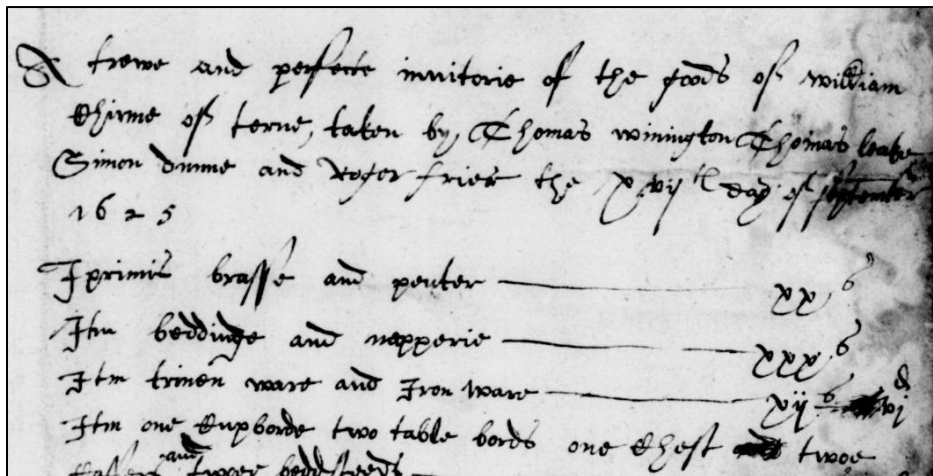 A trewe and perfecte invitorie of the goods of William
Chirme of terne, taken by, Thomas winington Thomas leake
Simon dunne and Roger frier the xvijth day of september
1625
Iprimis brasse and peuter xx s
Itm beddinge and napperie xxx s
Itm trinen ware and Iron ware xij s vj d
Itm one Cupborde two table bords one Chest twoe
Coffers and twoe beddsteeds